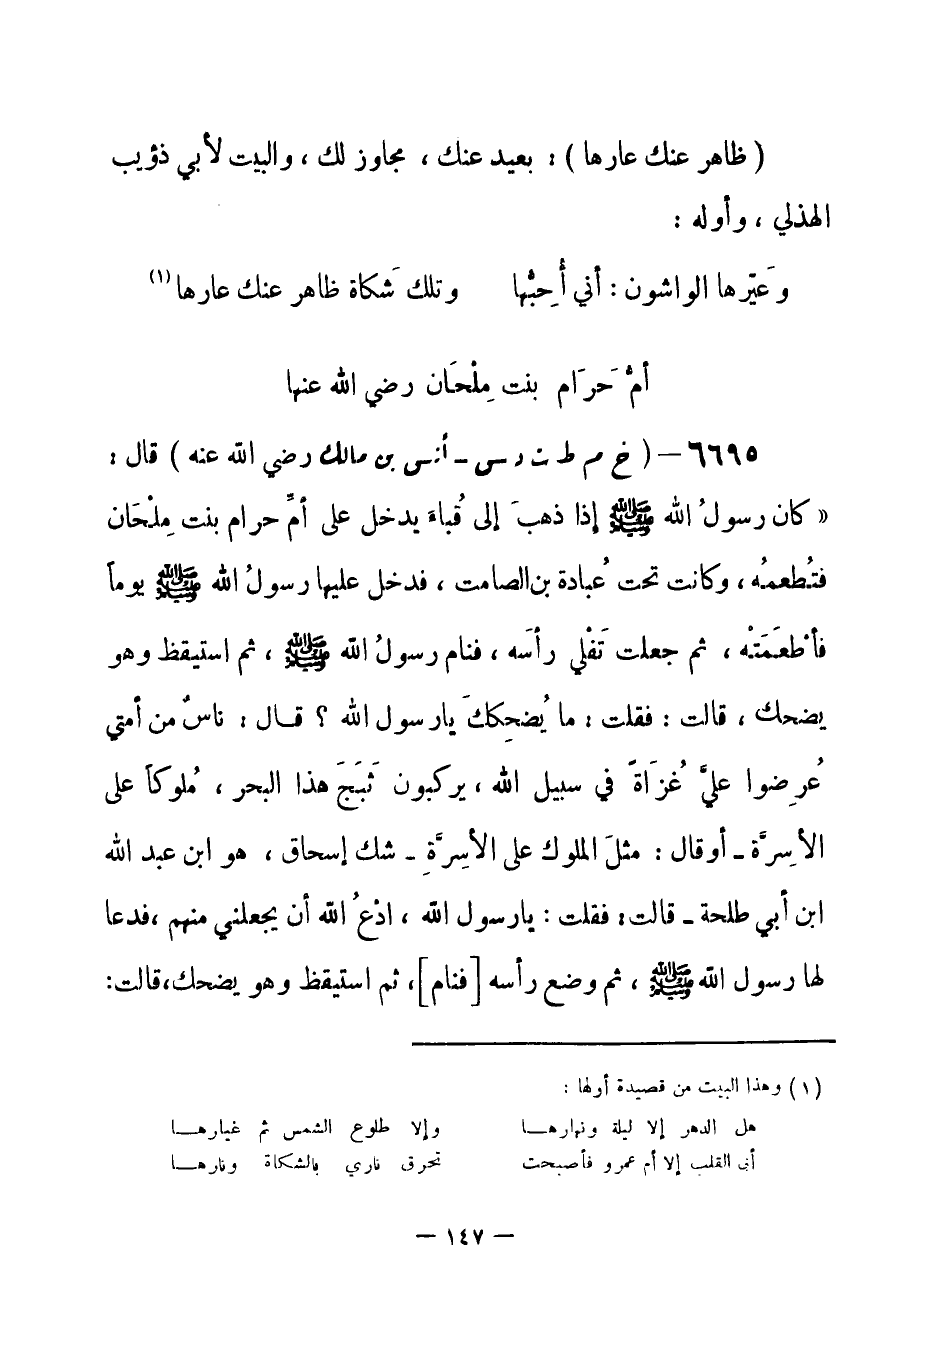 ( ظاهر عنك عارها ) : بعيد عنك ، مجاوز لك ، والبيت لأبي ذؤيب
الهذلي ، وأوله :
وَعيّرها الواشون : أني أُحِبُّها وتلك شَكاة ظاهر عنك عارها (١)
أمُّ حَرَام بنت مِلْحَان رضي الله عنها
٦٦٩٥ – ( خ م ط ت د س – أنس بن مالك رضي الله عنه ) قال :
« كان رسولُ الله ﷺ إذا ذهبَ إلى قُباءَ يدخل على أمِّ حرام بنت مِلْحَان
فتُطعمُه ، وكانت تحت عُبادة بن الصامت ، فدخل عليها رسولُ الله ﷺ يوماً
فأطعَمَتْه ، ثم جعلت تَفْلي رأسَه ، فنام رسولُ الله ﷺ ، ثم استيقظ وهو
يضحك ، قالت : فقلت : ما يُضحِككَ يا رسول الله ؟ قال : ناسٌ من أمتي
عُرِضوا عليَّ غُزَاةً في سبيل الله ، يركبون ثَبَجَ هذا البحر ، مُلوكاً على
الأسِرَّة – أو قال : مثلَ الملوك على الأسِرَّةِ – شك إسحاق ، هو ابن عبد الله
ابن أبي طلحة – قالت : فقلت : يا رسول الله ، ادْعُ الله أن يجعلني منهم ، فدعا
لها رسول الله ﷺ ، ثم وضع رأسه [فنام] ، ثم استيقظ وهو يضحك ، قالت :
(١) وهذا البيت من قصيدة أولها :
هل الدهر إلا ليلة ونهارهـا وإلا طلوع الشمس ثم غيارهـا
أبى القلب إلا أم عمرو فأصبحت تحرق ناري بالشكاة ونارهـا
– ١٤٧ –